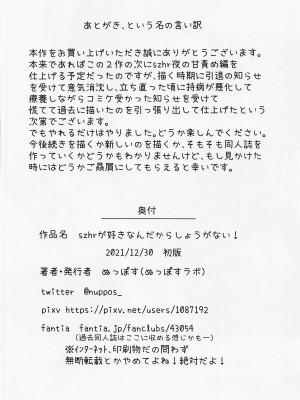 あとがき、という名の言い訳
本作をお買い上げいただき誠にありがとうございます。
本来であればこの２作の次にszhr夜の甘責め編を
仕上げる予定だったのですが、描く時期に引退の知らせ
を受けて意気消沈し、立ち直った頃に持病が悪化して
療養しながらコミケ受かった知らせを受けて
慌てて過去に描いたのを引っ張り出して仕上げたという
次第でございます。
でもやれるだけはやりました。どうか楽しんでください。
今後続きを描くか新しいのを描くか、そもそも同人誌を
作っていくかどうかもわかりませんけど、もし見かけた
時にはどうかご贔屓にしてもらえると幸いです。
奥付
作品名 szhrが好きなんだからしょうがない！
2021/12/30 初版
著者・発行者 ぬっぽす(ぬっぽすラボ)
twitter @nuppos_
pixv https://pixv.net/users/1087192
fantia fantia.jp/fanclubs/43054
(過去同人誌はここに収める感じかもー)
※ｲﾝﾀｰﾈｯﾄ、印刷物だの問わず
無断転載とかやめてよね！絶対だよ！